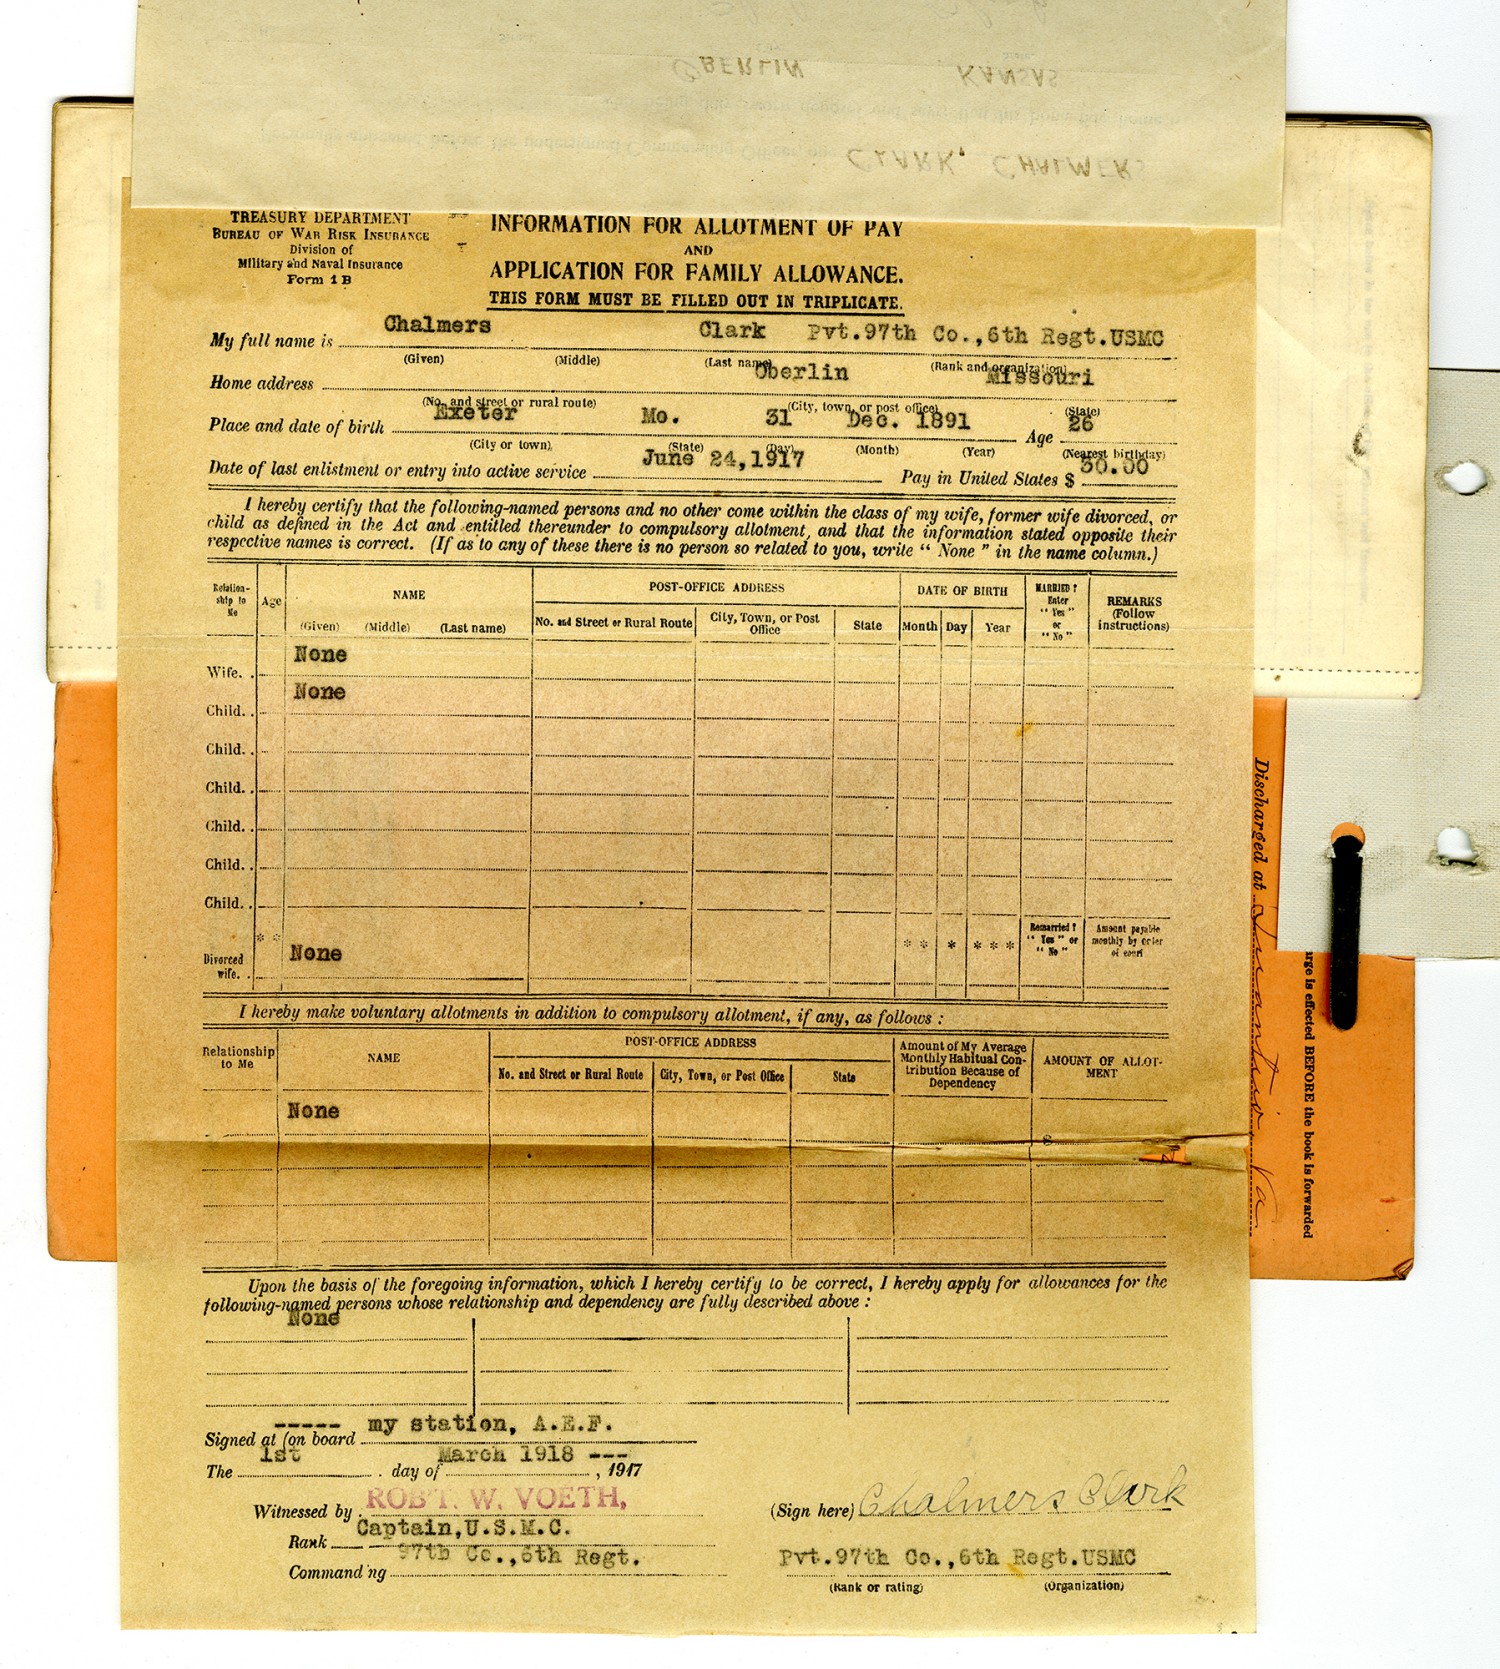 OBERLIN KANSAS
CLARK, CHALMERS
TREASURY DEPARTMENT
BUREAU OF WAR RISK INSURANCE
Division of
Military and Naval Insurance
Form 1 B
INFORMATION FOR ALLOTMENT OF PAY
AND
APPLICATION FOR FAMILY ALLOWANCE.
THIS FORM MUST BE FILLED OUT IN TRIPLICATE.
My full name is Chalmers Clark Pvt.97th Co.,6th Regt.USMC
(Given) (Middle) (Last name) (Rank and organization)
Home address Oberlin Missouri
(No. and street or rural route) (City, town, or post office) (State)
Place and date of birth Exeter Mo. 31 Dec. 1891 Age 26
(City or town) (State) (Day) (Month) (Year) (Nearest birthday)
Date of last enlistment or entry into active service June 24,1917 Pay in United States $ 30.00
I hereby certify that the following-named persons and no other come within the class of my wife, former wife divorced, or
child as defined in the Act and entitled thereunder to compulsory allotment, and that the information stated opposite their
respective names is correct. (If as to any of these there is no person so related to you, write "None" in the name column.)
Relation-ship to Me Age NAME (Given) (Middle) (Last name) POST-OFFICE ADDRESS No. and Street or Rural Route City, Town, or Post Office State DATE OF BIRTH Month Day Year MARRIED? Enter "Yes" or "No" REMARKS (Follow instructions)
Wife. . None
Child. . None
Child. .
Child. .
Child. .
Child. .
Child. .
Divorced wife. . * * None * * * * * * Remarried? "Yes" or "No" Amount payable monthly by order of court
I hereby make voluntary allotments in addition to compulsory allotment, if any, as follows :
Relationship to Me NAME POST-OFFICE ADDRESS No. and Street or Rural Route City, Town, or Post Office State Amount of My Average Monthly Habitual Contribution Because of Dependency AMOUNT OF ALLOT-MENT
None
Upon the basis of the foregoing information, which I hereby certify to be correct, I hereby apply for allowances for the
following-named persons whose relationship and dependency are fully described above :
None
Signed at (on board ----- my station, A.E.F.
The 1st day of March 1918 ---, 1917
Witnessed by ROB'T. W. VOETH,
(Sign here) Chalmers Clark
Rank Captain,U.S.M.C.
Commanding 97th Co.,6th Regt.
Pvt.97th Co.,6th Regt.USMC
(Rank or rating) (Organization)
Discharged at Quantico Va
arge is effected BEFORE the book is forwarded